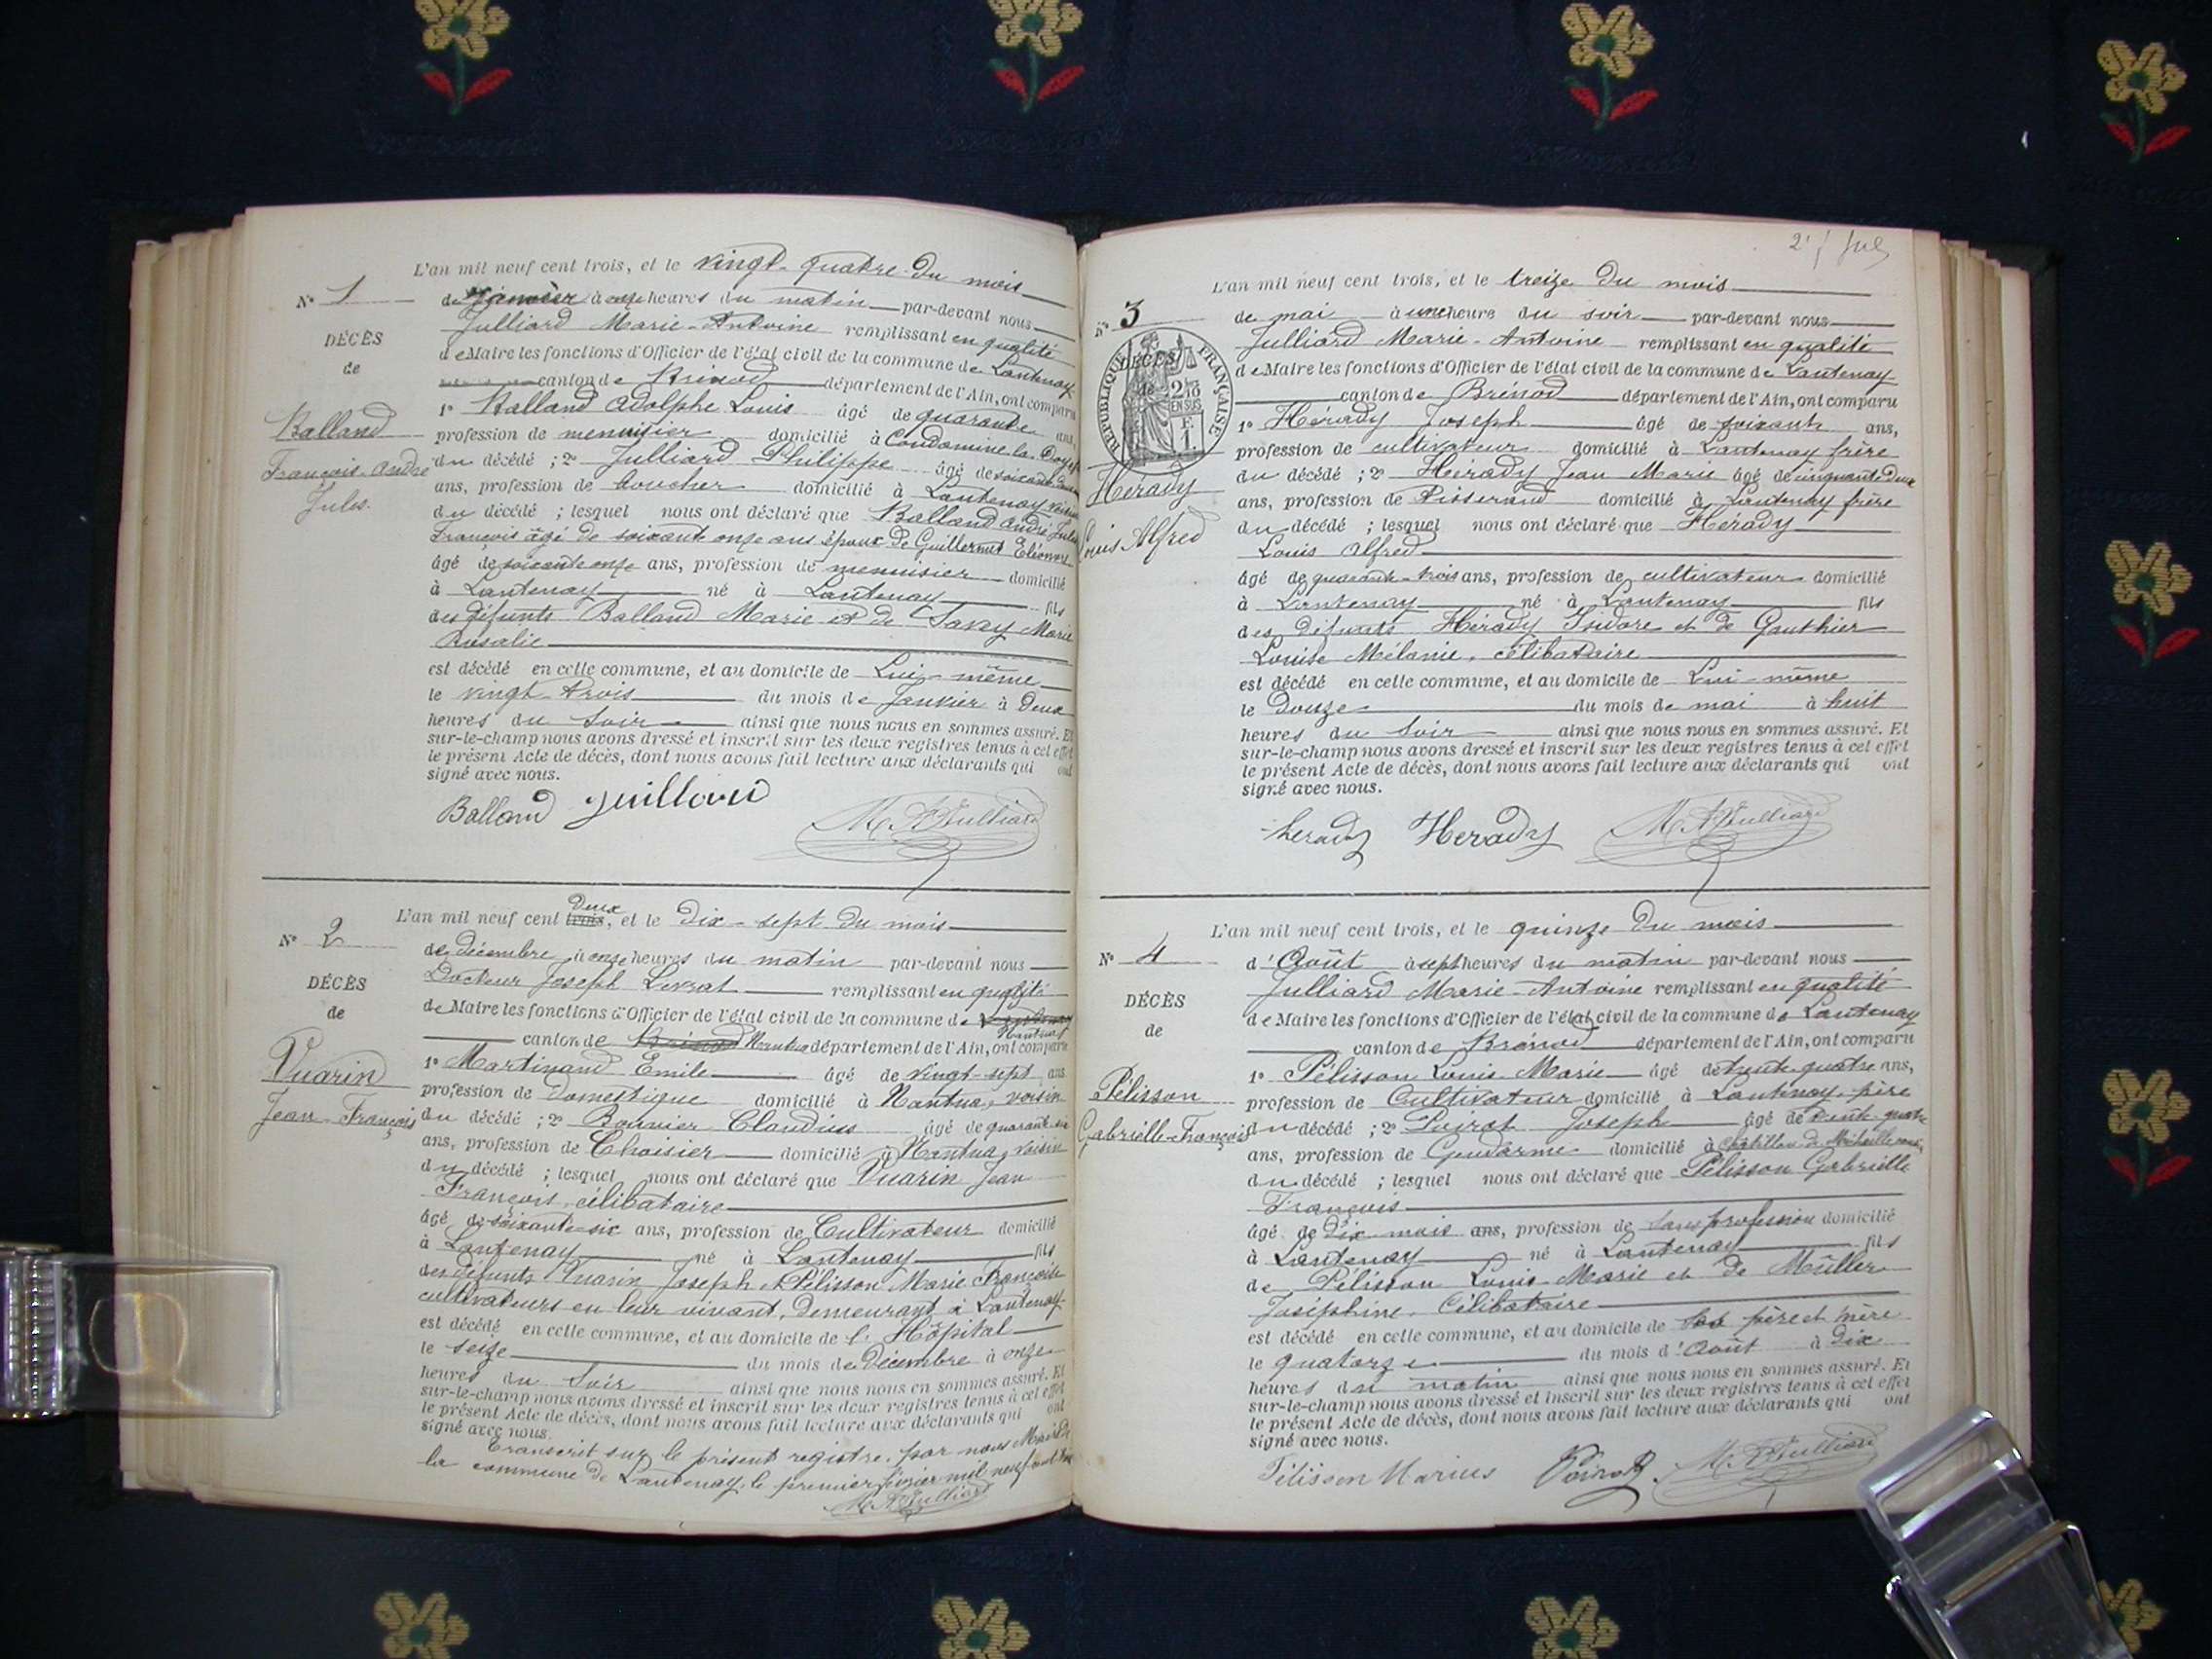 L'an mil neuf cent trois, et le vingt-quatre du mois
N° 1
de Janvier à onze heures du matin par-devant nous
DÉCÈS
Julliard Marie-Antoine remplissant en qualité
de
de Maire les fonctions d'Officier de l'état civil de la commune de Lantenay
canton de Brénod département de l'Ain, ont comparu
1° Balland Adolphe Louis âgé de quarante ans,
Balland
profession de menuisier domicilié à Condamine-la-Doye
François-André
du décédé ; 2° Julliard Philippe âgé de soixante
Jules.
ans, profession de boucher domicilié à Lantenay voisin
du décédé ; lesquel nous ont déclaré que Balland André Jules
François âgé de soixante onze ans époux de Guillermet Eléonore
âgé de soixante onze ans, profession de menuisier domicilié
à Lantenay né à Lantenay fils
des défunts Balland Marie et de Savey Marie
Rosalie
est décédé en cette commune, et au domicile de Lui-même
le vingt trois du mois de Janvier à deux
heures du soir ainsi que nous nous en sommes assuré. Et
sur-le-champ nous avons dressé et inscrit sur les deux registres tenus à cet effet
le présent Acte de décès, dont nous avons fait lecture aux déclarants qui ont
signé avec nous.
Balland Juilliard M. A. Julliard
deux
L'an mil neuf cent trois, et le dix-sept du mois
N° 2
de décembre à onze heures du matin par-devant nous
DÉCÈS
Docteur Joseph Levrat remplissant en qualité
de
de Maire les fonctions d'Officier de l'état civil de la commune de Lantenay
Nantua
canton de Brénod Nantua département de l'Ain, ont comparu
1° Martinand Emile âgé de vingt-sept ans
Vuarin
profession de domestique domicilié à Nantua, voisin
Jean-François
du décédé ; 2° Bounier Claudius âgé de quarante-six
ans, profession de Choisier domicilié à Nantua, voisin
du décédé ; lesquel nous ont déclaré que Vuarin Jean
François, célibataire
âgé de soixante-six ans, profession de Cultivateur domicilié
à Lantenay né à Lantenay fils
des défunts Vuarin Joseph et Pélisson Marie Françoise
cultivateurs en leur vivant, demeurant à Lantenay
est décédé en cette commune, et au domicile de l'Hôpital
le seize du mois de Décembre à onze
heures du soir ainsi que nous nous en sommes assuré. Et
sur-le-champ nous avons dressé et inscrit sur les deux registres tenus à cet effet
le présent Acte de décès, dont nous avons fait lecture aux déclarants qui ont
signé avec nous.
Transcrit sur le présent registre, par nous Maire de
la commune de Lantenay, le premier février mil neuf cent trois
M. A. Julliard
L'an mil neuf cent trois, et le treize du mois
N° 3
de mai à une heure du soir par-devant nous
RÉPUBLIQUE FRANÇAISE
2/10 EN SUS
F. 1
DÉCÈS
Julliard Marie-Antoine remplissant en qualité
de
de Maire les fonctions d'Officier de l'état civil de la commune de Lantenay
canton de Brénod département de l'Ain, ont comparu
1° Hérady Joseph âgé de soixante ans,
profession de cultivateur domicilié à Lantenay frère
Hérady
du décédé ; 2° Hérady Jean Marie âgé de cinquante deux
Louis Alfred
ans, profession de Tisserand domicilié à Lantenay frère
du décédé ; lesquel nous ont déclaré que Hérady
Louis Alfred
âgé de quarante-trois ans, profession de cultivateur domicilié
à Lantenay né à Lantenay fils
des défunts Hérady Isidore et de Gauthier
Louise Mélanie, célibataire
est décédé en cette commune, et au domicile de Lui-même
le Douze du mois de mai à huit
heures du soir ainsi que nous nous en sommes assuré. Et
sur-le-champ nous avons dressé et inscrit sur les deux registres tenus à cet effet
le présent Acte de décès, dont nous avons fait lecture aux déclarants qui ont
signé avec nous.
herady Herady M. A. Julliard
L'an mil neuf cent trois, et le quinze du mois
N° 4
d'Août à sept heures du matin par-devant nous
DÉCÈS
Julliard Marie-Antoine remplissant en qualité
de
de Maire les fonctions d'Officier de l'état civil de la commune de Lantenay
canton de Brénod département de l'Ain, ont comparu
1° Pélisson Louis Marie âgé de trente-quatre ans,
Pélisson
profession de Cultivateur domicilié à Lantenay, père
Gabrielle-François
du décédé ; 2° Poirot Joseph âgé de trente-quatre
ans, profession de Gendarme domicilié à Châtillon de Michaille
du décédé ; lesquel nous ont déclaré que Pélisson Gabrielle
François
âgé de dix mois ans, profession de sans profession domicilié
à Lantenay né à Lantenay fils
de Pélisson Louis-Marie et de Müller
Joséphine, Célibataire
est décédé en cette commune, et au domicile de ses père et mère
le quatorze du mois d'Août à dix
heures du matin ainsi que nous nous en sommes assuré. Et
sur-le-champ nous avons dressé et inscrit sur les deux registres tenus à cet effet
le présent Acte de décès, dont nous avons fait lecture aux déclarants qui ont
signé avec nous.
Pélisson Marius Poirot M. A. Julliard